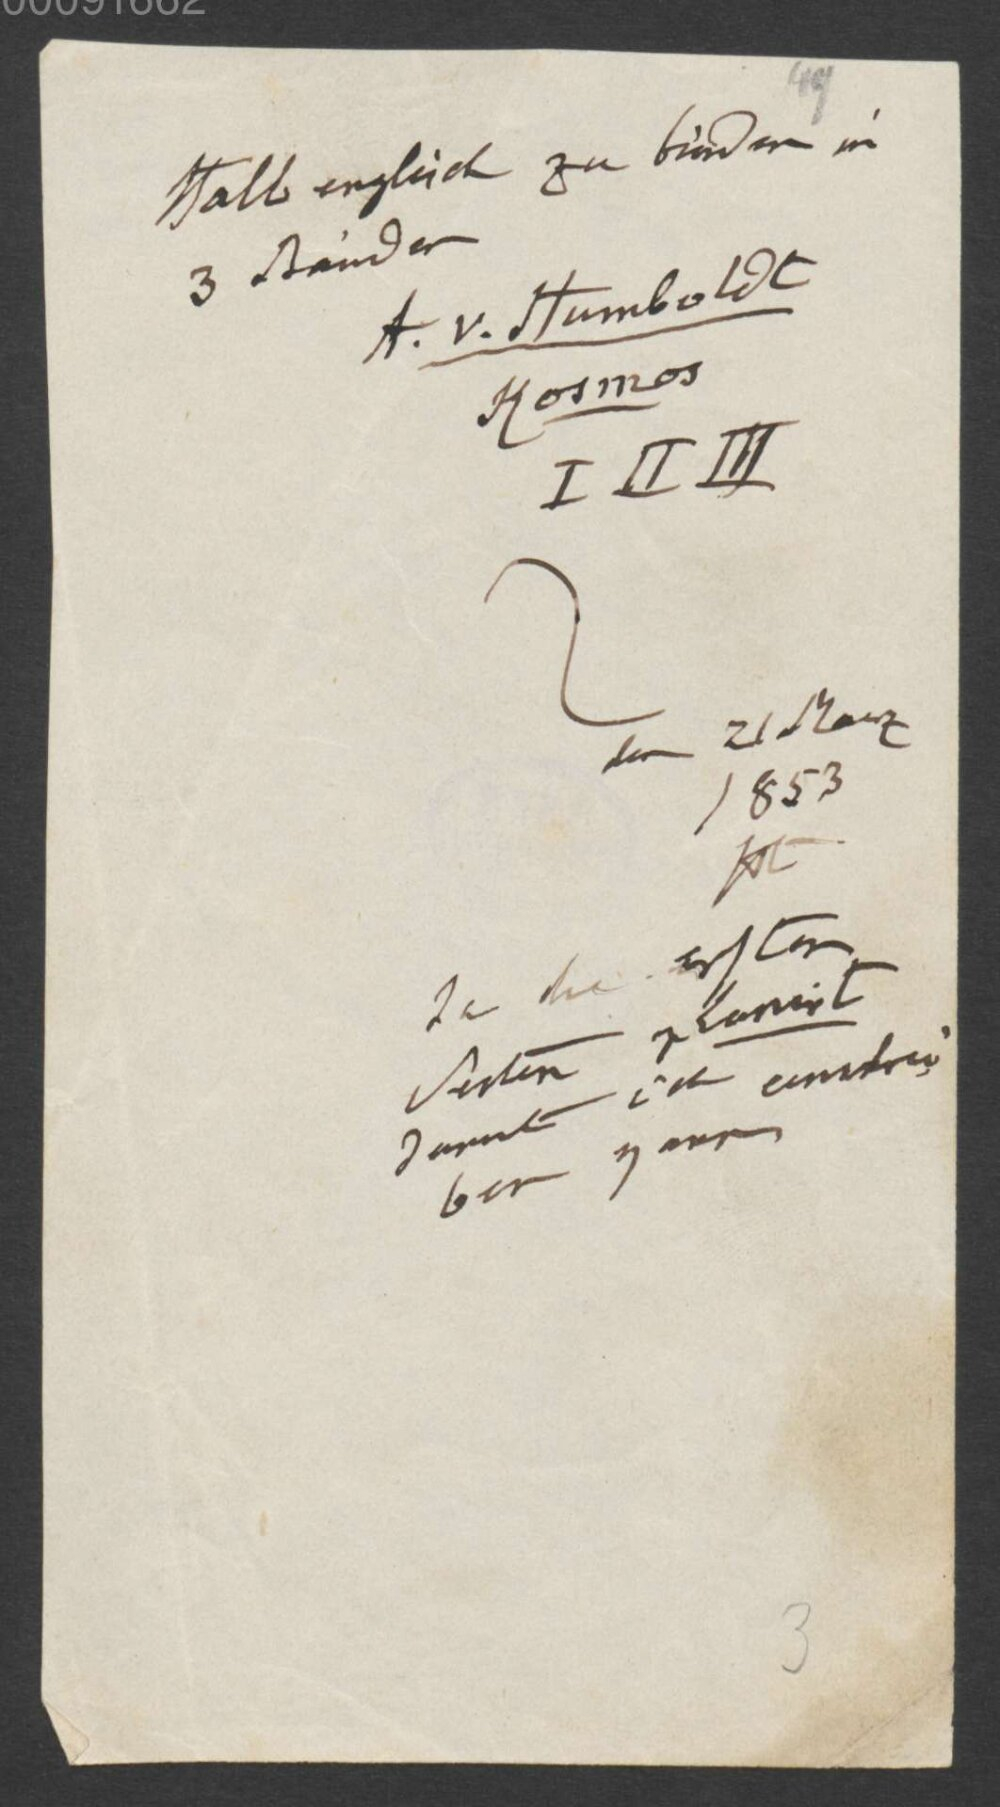 00091662
49
Halb englisch zu binden in
3 Bänder
A. v. Humboldt
Kosmos
I II III
den 21 März
1853
Ht
die ersten
Seiten planirt
damit ich einschrei
ben kann
3